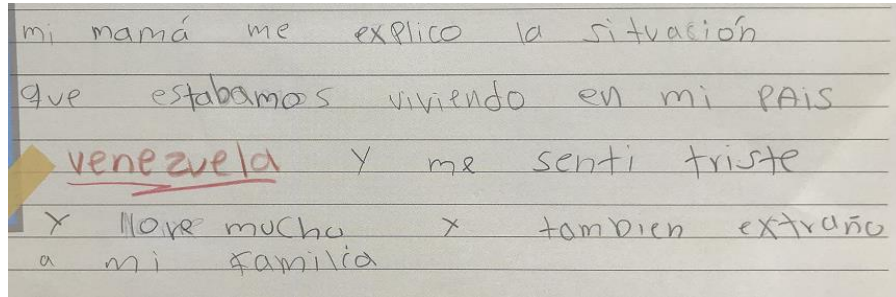 mi mamá me explico la situación
que estabamos viviendo en mi PAis
venezuela Y me senti triste
Y llore mucho Y tambien extraño
a mi familia